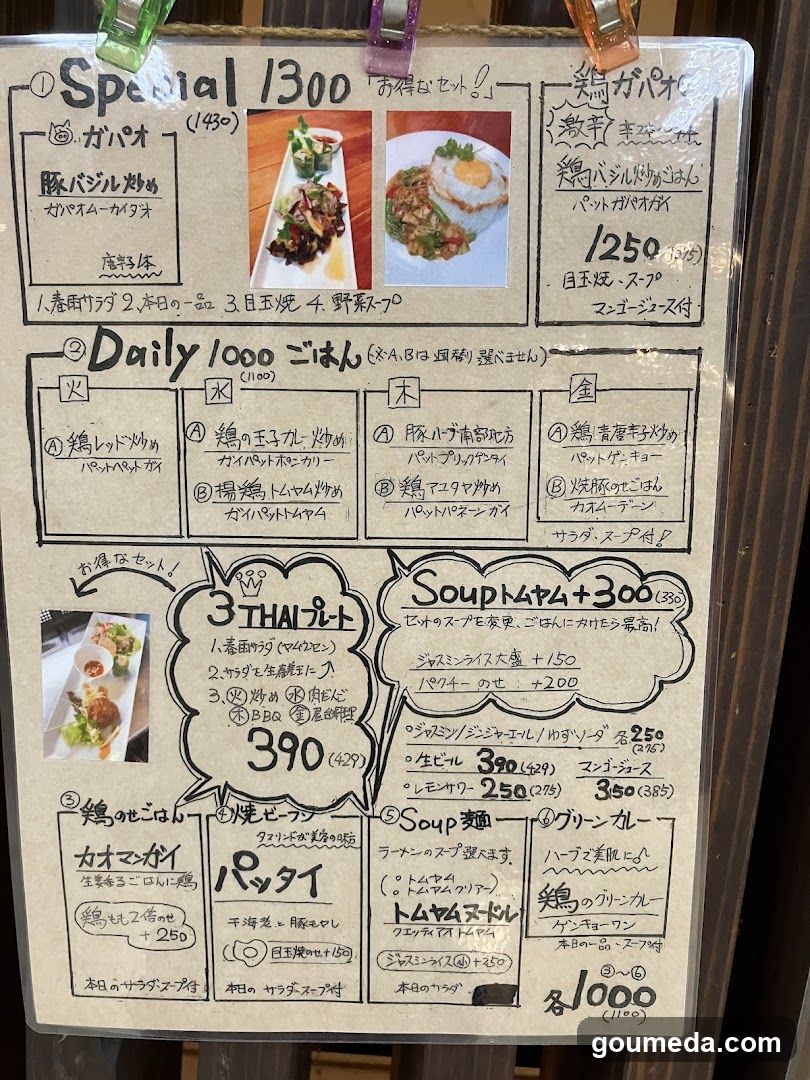 ① Special 1300 「お得なセット!」
(1430)
ガパオ
豚バジル炒め
ガパオムーカイダオ
唐辛子1本
1、春雨サラダ 2、本日の一品 3、目玉焼 4、野菜スープ
鶏ガパオ
激辛
鶏バジル炒めごはん
パットガパオガイ
1250
目玉焼、スープ
マンゴージュース付
② Daily 1000 ごはん (※A、Bは週替り 選べません)
(1100)
火
Ⓐ 鶏レッド炒め
パットペットガイ
水
Ⓐ 鶏の玉子カレー炒め
ガイパットポンカリー
Ⓑ 揚鶏トムヤム炒め
ガイパットトムヤム
木
Ⓐ 豚ハーブ南部地方
パットプリックゲンタイ
Ⓑ 鶏アユタヤ炒め
パットパネーンガイ
金
Ⓐ 鶏青唐辛子炒め
パットゲンキョー
Ⓑ 焼豚のせごはん
カオムーデーン
サラダ、スープ付!
お得なセット!
3 THAI プレート
1、春雨サラダ(ヤムウンセン)
2、サラダを生春巻に
3、火炒め 水肉だんご
木BBQ 金屋台料理
390 (429)
Soupトムヤム+300 (330)
セットのスープを変更、ごはんにかけたら最高!
ジャスミンライス大盛 +150
パクチーのせ +200
○ジャスミン/ジンジャーエール/ゆずソーダ 各250
(275)
○生ビール 390 (429) マンゴージュース
○レモンサワー 250 (275) 350 (385)
③ 鶏のせごはん
カオマンガイ
生姜香るごはんに鶏
鶏もも2倍のせ
+250
本日のサラダ・スープ付
④ 焼ビーフン
タマリンドが美容の味方
パッタイ
干海老と豚もやし
目玉焼のせ+150
本日の サラダ・スープ付
⑤ Soup麺
ラーメンのスープ選べます。
○トムヤム
○トムヤムクリアー
トムヤムヌードル
クエッティアオトムヤム
ジャスミンライス(小)+250
本日のサラダ
⑥ グリーンカレー
ハーブで美肌に♪
鶏のグリーンカレー
ゲンキョーワン
本日の一品・スープ付
③～⑥
各1000
(1100)
goumeda.com